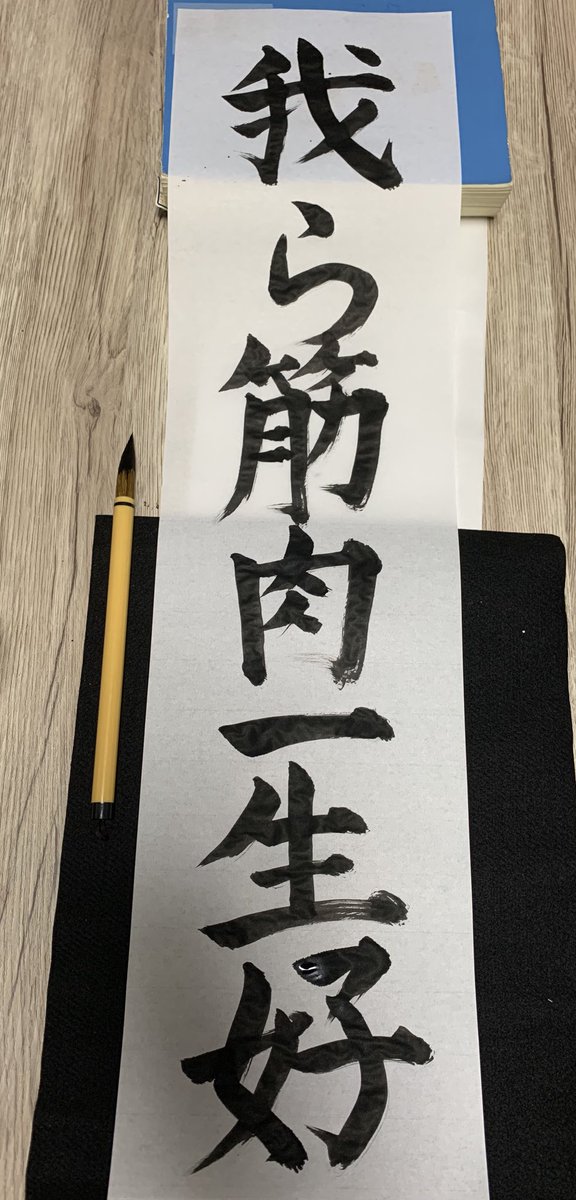 我ら筋肉一生好